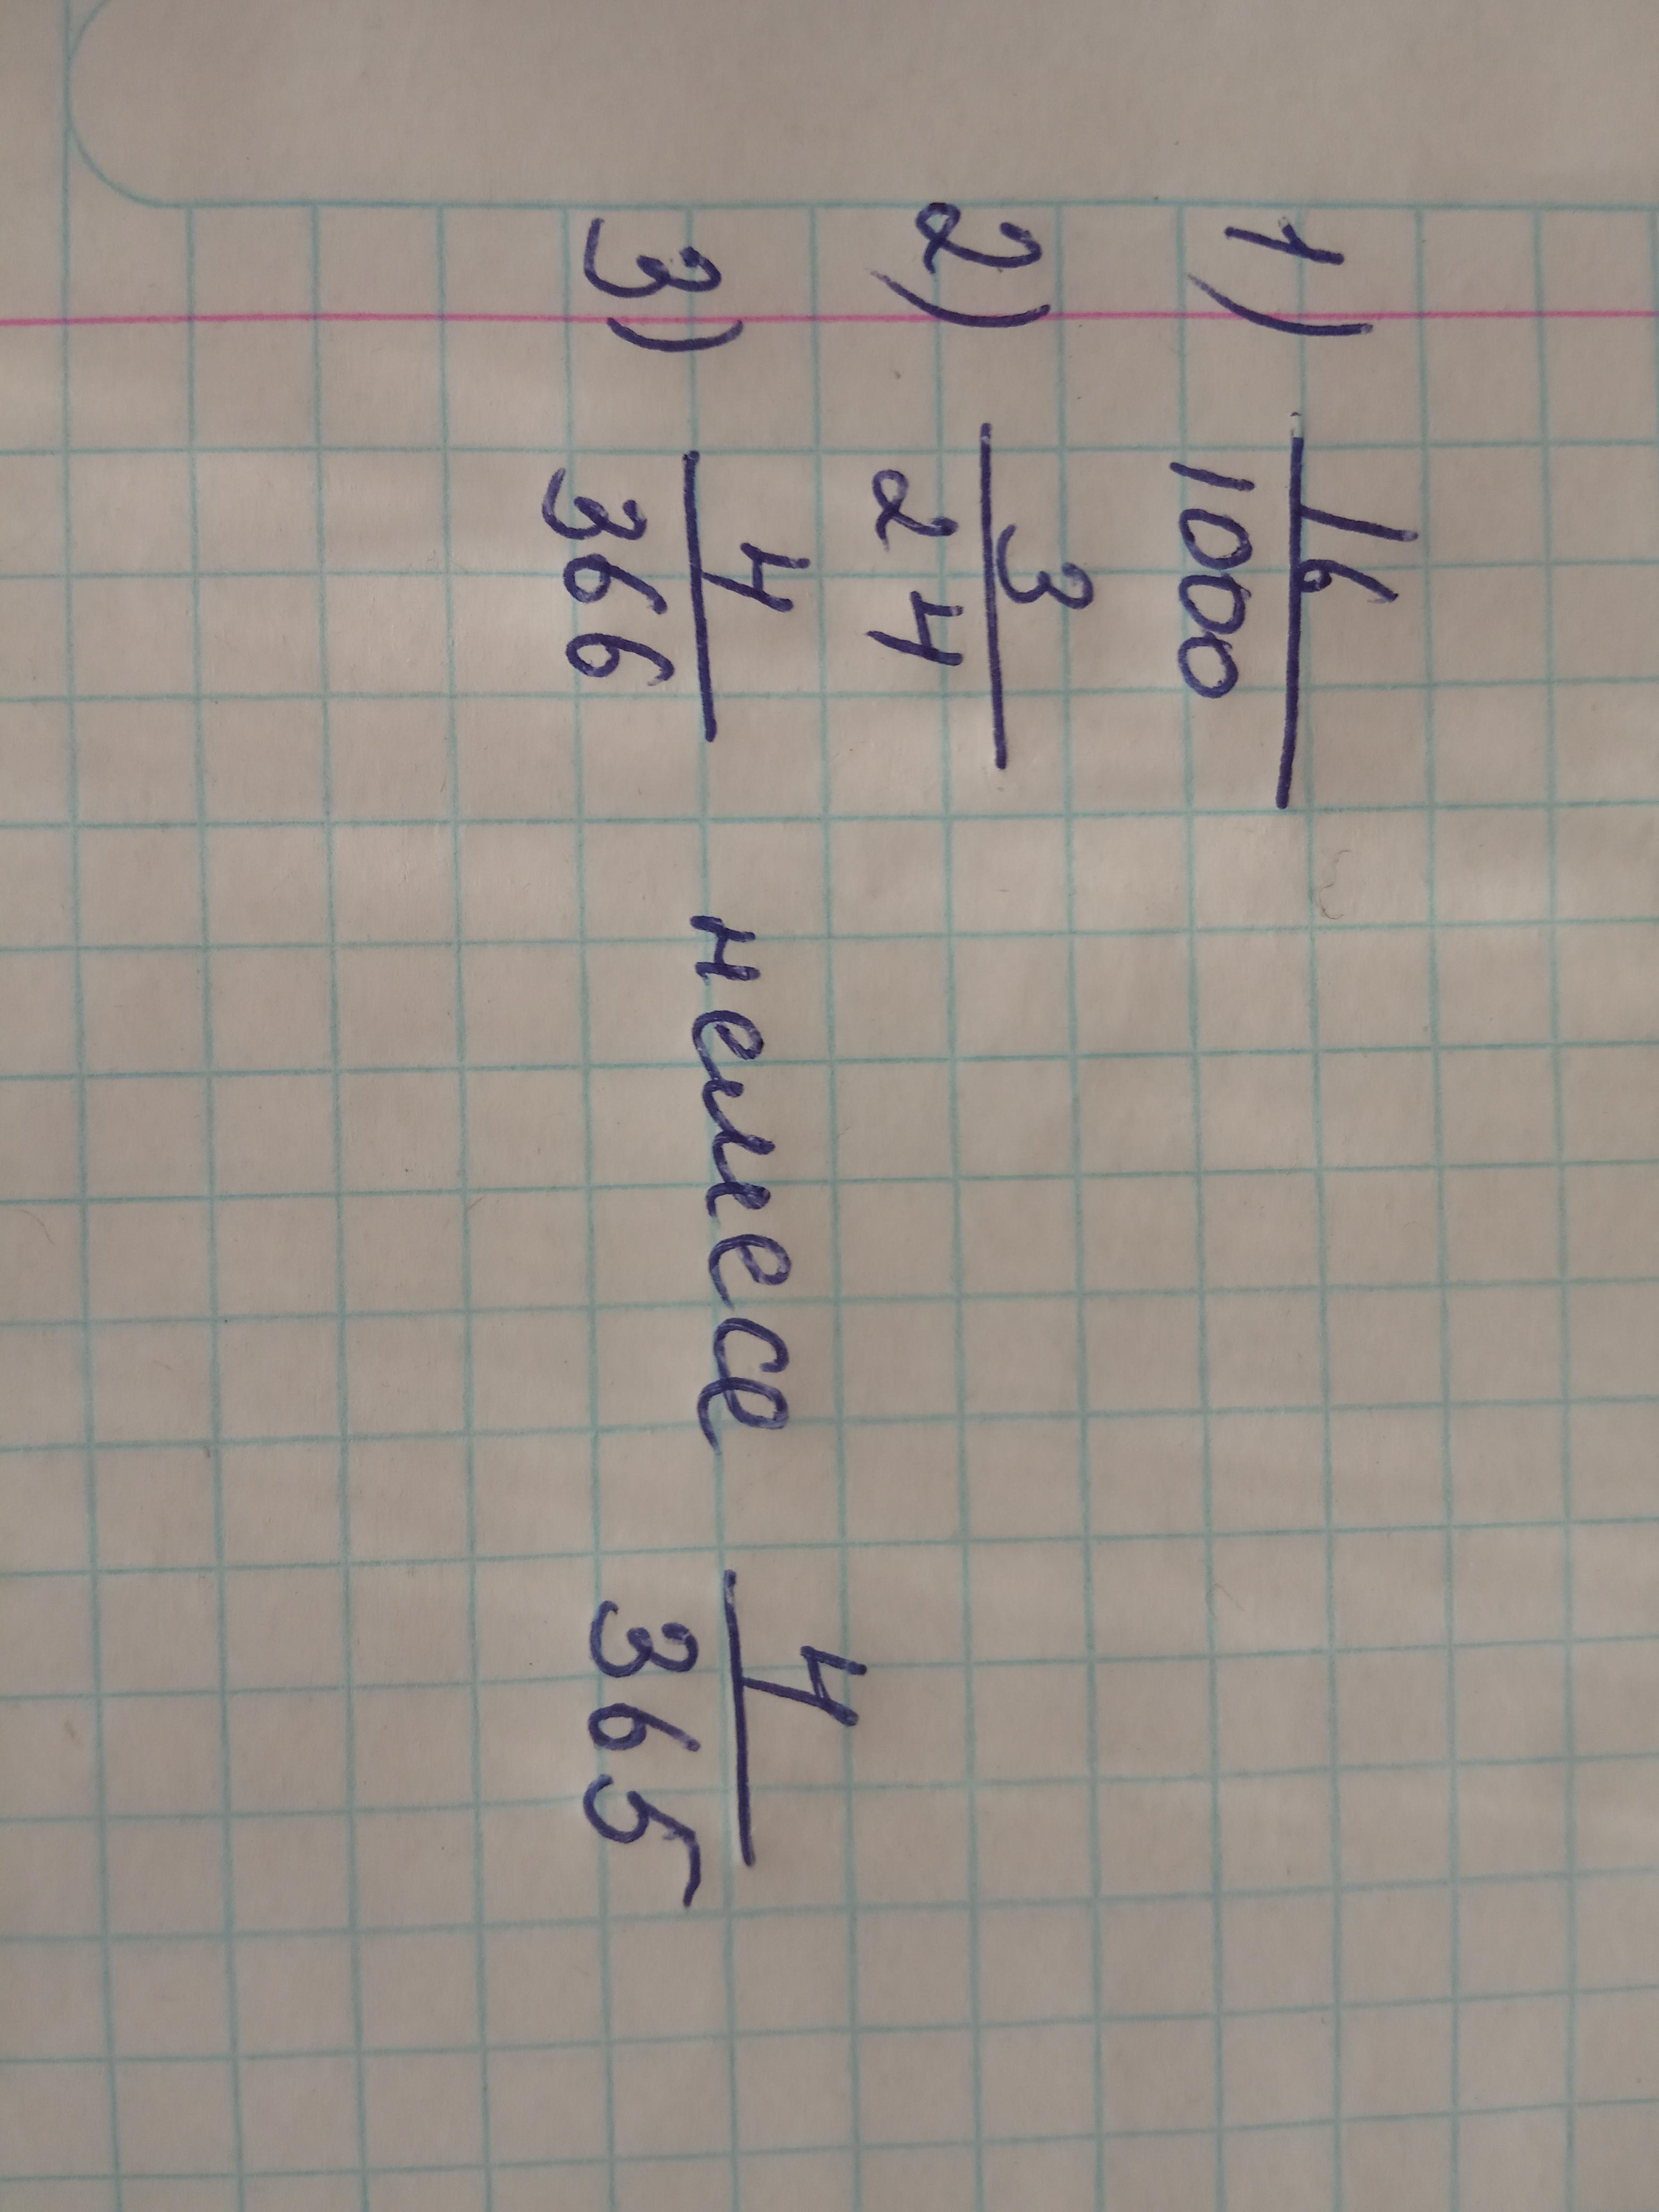 1) 16/1000
2) 3/24
3) 4/366 немесе 4/365